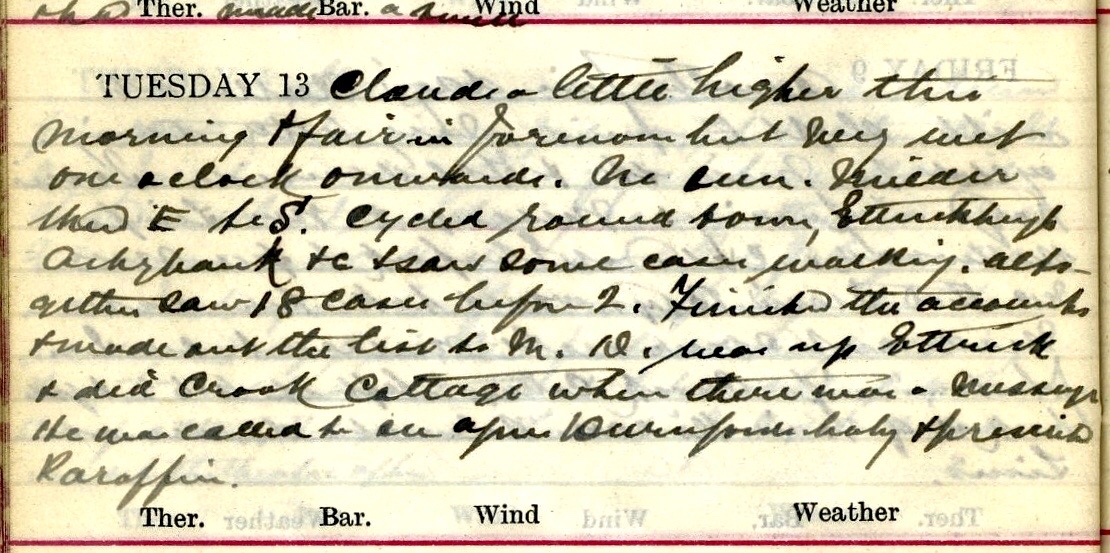 Ther. Bar. Wind Weather
made a small
TUESDAY 13 Clouds a little higher this
morning & fair in forenoon but very wet
one o clock onwards. No sun. Milder
Wind E to S. Cycled round town, Ettrickhaugh
& saw some cases walking. alto-
gether saw 18 cases before 2. Finished the accounts
& made out the list to M. D. was up Ettrick
& did Crook Cottage when there was a message
He was called to see baby & prescribed
Paraffin.
Ther. Bar. Wind Weather